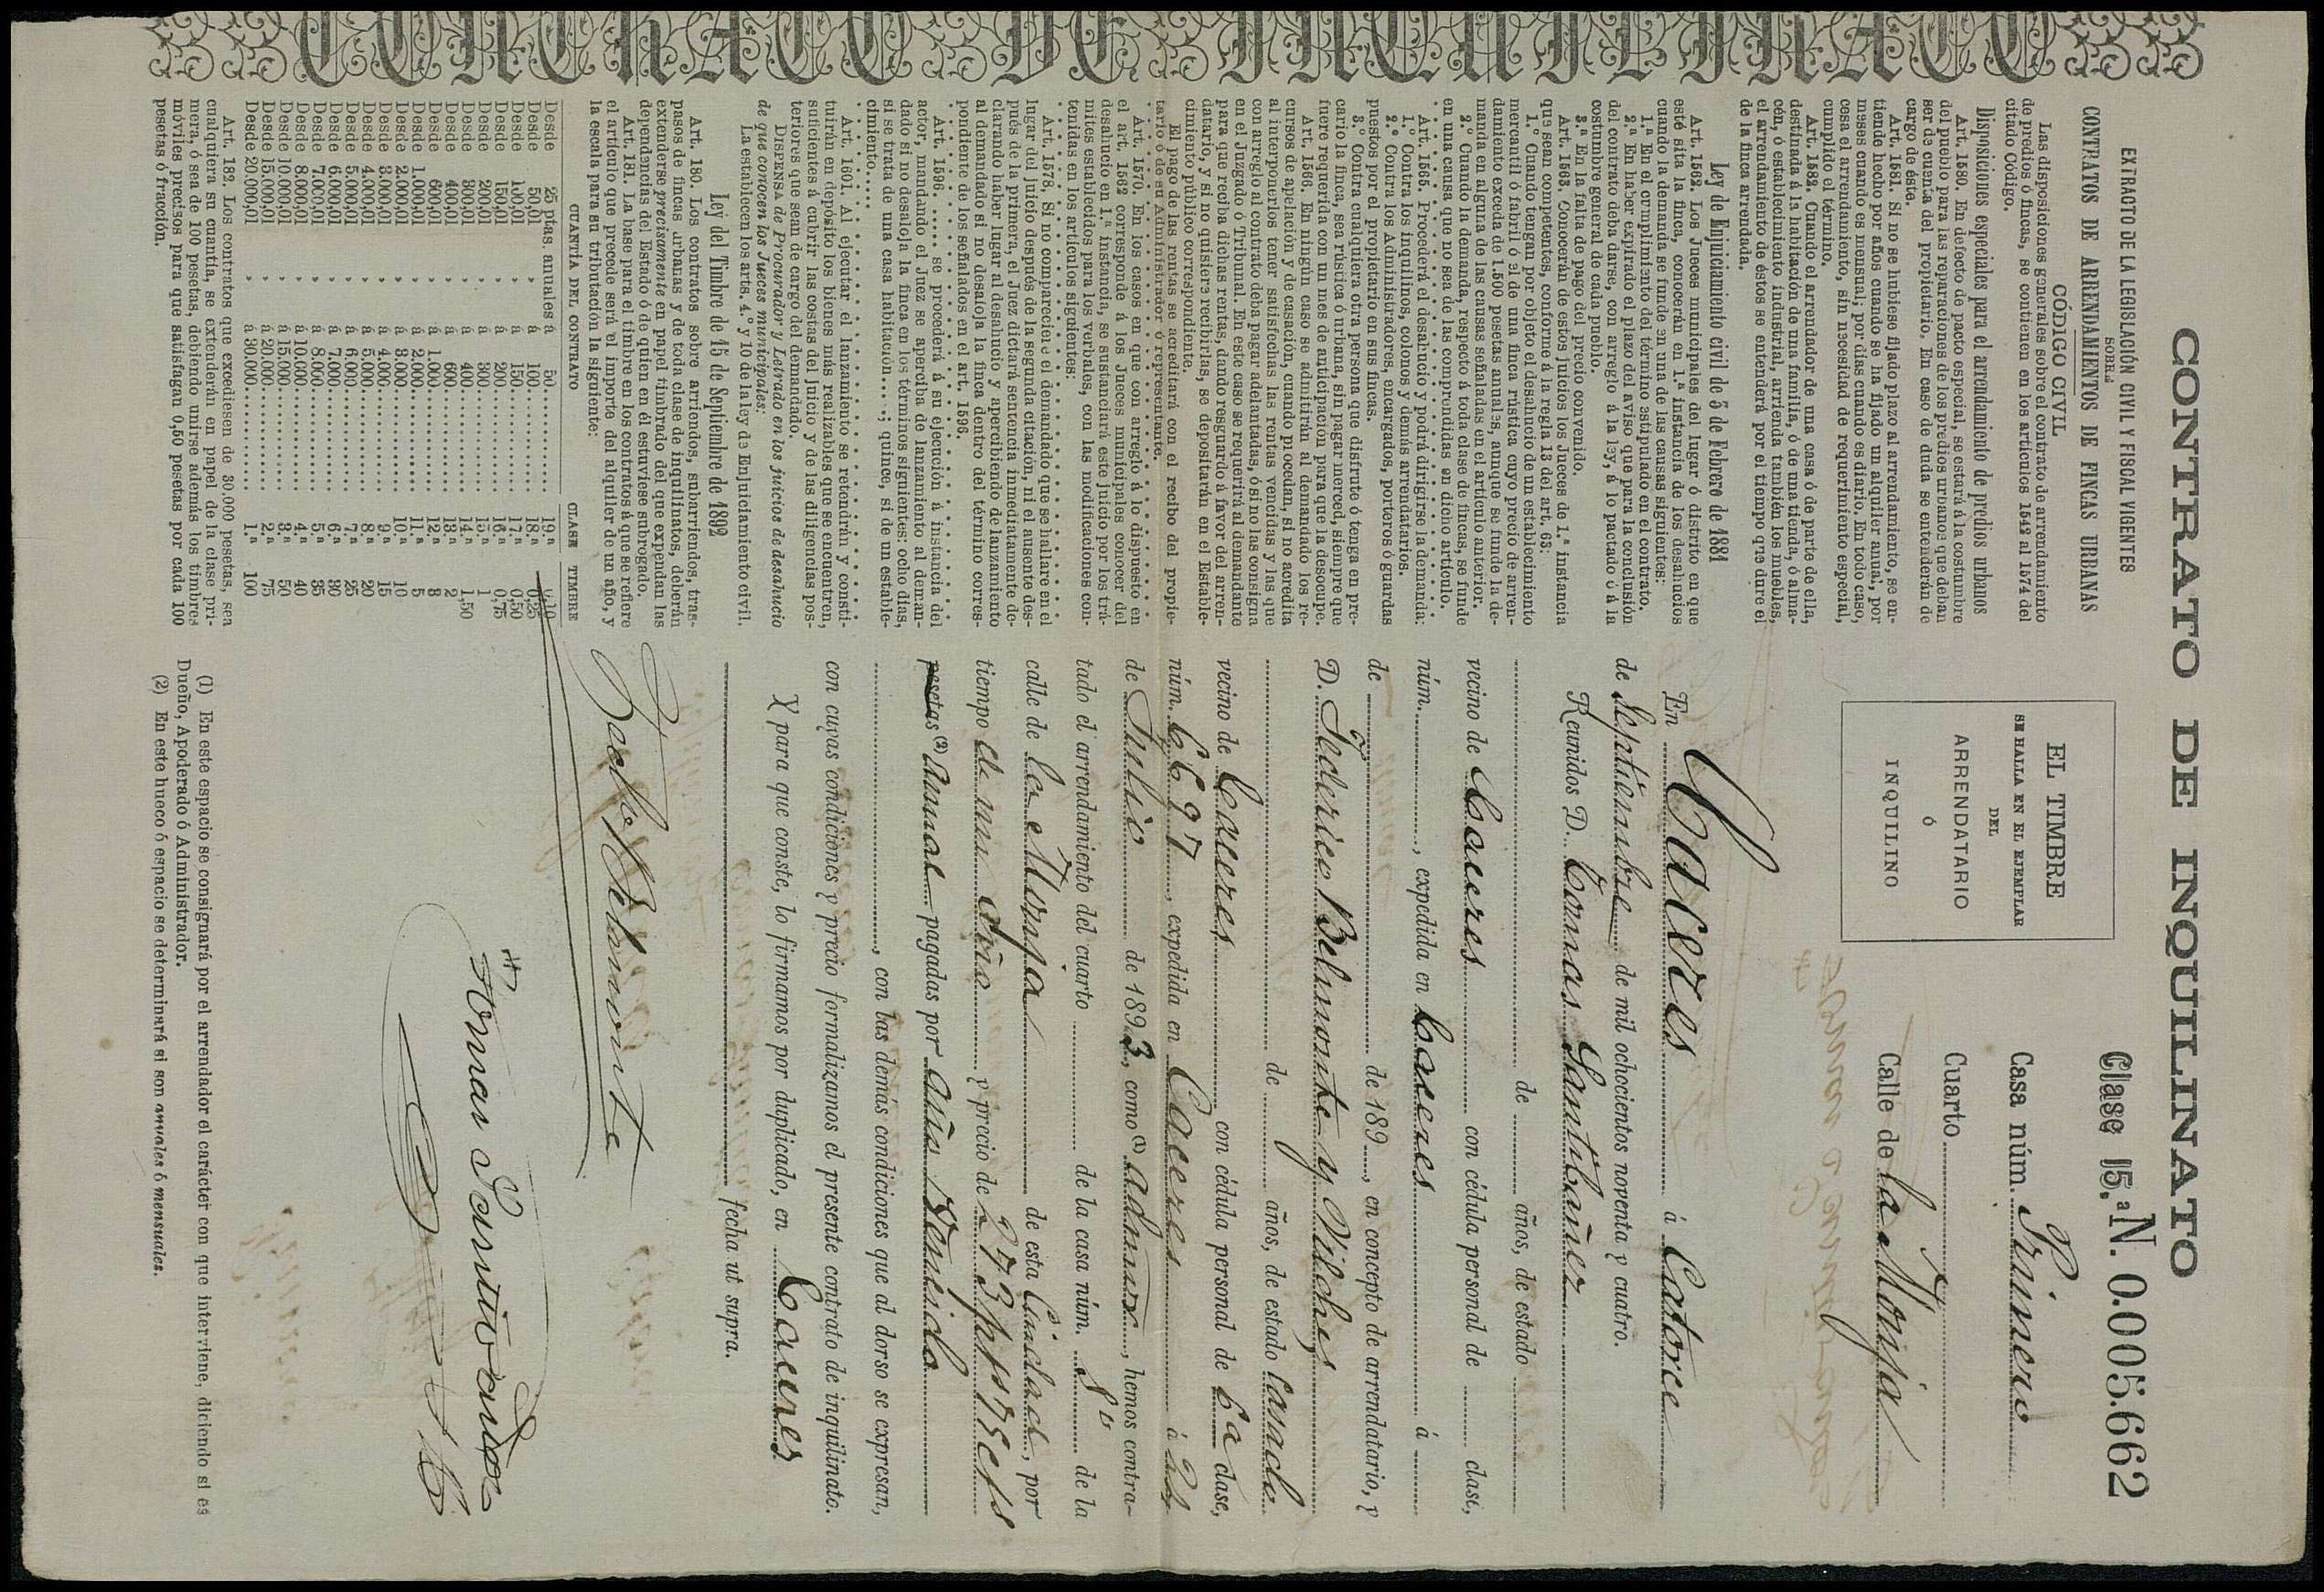 CONTRATO DE INQUILINATO
CONTRATO DE INQUILINATO
EXTRACTO DE LA LEGISLACIÓN CIVIL Y FISCAL VIGENTES
SOBRE
CONTRATOS DE ARRENDAMIENTOS DE FINCAS URBANAS
CÓDIGO CIVIL
Las disposiciones generales sobre el contrato de arrendamiento
de predios ó fincas, se contienen en los artículos 1542 al 1574 del
citado Código.
Disposiciones especiales para el arrendamiento de predios urbanos
Art. 1580. En defecto de pacto especial, se estará á la costumbre
del pueblo para las reparaciones de los predios urbanos que deban
ser de cuenta del propietario. En caso de duda se entenderán de
cargo de éste.
Art. 1581. Si no se hubiese fijado plazo al arrendamiento, se en-
tiende hecho por años cuando se ha fijado un alquiler anual, por
meses cuando es mensual; por días cuando es diario. En todo caso,
cesa el arrendamiento, sin necesidad de requerimiento especial,
cumplido el término.
Art. 1582. Cuando el arrendador de una casa ó de parte de ella,
destinada á la habitación de una familia, ó de una tienda, ó alma-
cén, ó establecimiento industrial, arrienda también los muebles,
el arrendamiento de éstos se entenderá por el tiempo que dure el
de la finca arrendada.
Ley de Enjuiciamiento civil de 3 de Febrero de 1881
Art. 1562. Los Jueces municipales del lugar ó distrito en que
esté sita la finca, conocerán en 1.ª instancia de los desahucios
cuando la demanda se funde en una de las causas siguientes:
1.ª En el cumplimiento del término estipulado en el contrato.
2.ª En haber expirado el plazo del aviso que para la conclusión
del contrato deba darse, con arreglo á la ley, á lo pactado ó á la
costumbre general de cada pueblo.
3.ª En la falta de pago del precio convenido.
Art. 1563. Conocerán de estos juicios los Jueces de 1.ª instancia
que sean competentes, conforme á la regla 13 del art. 63:
1.º Cuando tengan por objeto el desahucio de un establecimiento
mercantil ó fabril ó el de una finca rústica cuyo precio de arren-
damiento exceda de 1.500 pesetas anuales, aunque se funde la de-
manda en alguna de las causas señaladas en el artículo anterior.
2.º Cuando la demanda, respecto á toda clase de fincas, se funde
en una causa que no sea de las comprendidas en dicho artículo.
Art. 1565. Procederá el desahucio y podrá dirigirse la demanda:
1.º Contra los inquilinos, colonos y demás arrendatarios.
2.º Contra los Administradores, encargados, porteros ó guardas
puestos por el propietario en sus fincas.
3.º Contra cualquiera otra persona que disfrute ó tenga en pre-
cario la finca, sea rústica ó urbana, sin pagar merced, siempre que
fuere requerida con un mes de anticipación para que la desocupe.
Art. 1566. En ningún caso se admitirán al demandado los re-
cursos de apelación y de casación, cuando procedan, si no acredita
al interponerlos tener satisfechas las rentas vencidas y las que
con arreglo al contrato deba pagar adelantadas, ó si no las consigna
en el Juzgado ó Tribunal. En este caso se requerirá al demandante
para que reciba dichas rentas, dando resguardo á favor del arren-
datario, y si no quisiere recibirlas, se depositarán en el Estable-
cimiento público correspondiente.
El pago de las rentas se acreditará con el recibo del propie-
tario ó de su Administrador ó representante.
Art. 1570. En los casos en que con arreglo á lo dispuesto en
el art. 1562 corresponde á los Jueces municipales conocer del
desahucio en 1.ª instancia, se sustanciará este juicio por los trá-
mites establecidos para los verbales, con las modificaciones con-
tenidas en los artículos siguientes:
Art. 1578. Si no compareciere el demandado que se hallare en el
lugar del juicio después de la segunda citación, ni el ausente des-
pués de la primera, el Juez dictará sentencia inmediatamente de-
clarando haber lugar al desahucio y apercibiendo de lanzamiento
al demandado si no desaloja la finca dentro del término corres-
pondiente de los señalados en el art. 1596.
Art. 1596. ..... se procederá á su ejecución á instancia del
actor, mandando el Juez se aperciba de lanzamiento al deman-
dado si no desaloja la finca en los términos siguientes: ocho días,
si se trata de una casa habitación....; quince, si de un estable-
cimiento.....
Art. 1601. Al ejecutar el lanzamiento se retendrán y consti-
tuirán en depósito los bienes más realizables que se encuentren,
suficientes á cubrir las costas del juicio y de las diligencias pos-
teriores que sean de cargo del demandado.
DISPENSA de Procurador y Letrado en los juicios de desahucio
de que conocen los Jueces municipales:
La establecen los arts. 4.º y 10 de la ley de Enjuiciamiento civil.
Ley del Timbre de 15 de Septiembre de 1892
Art. 180. Los contratos sobre arriendos, subarriendos, tras-
pasos de fincas urbanas y de toda clase de inquilinatos, deberán
extenderse precisamente en papel timbrado del que expendan las
dependencias del Estado ó de quien en él estuviese subrogado.
Art. 181. La base para el timbre en los contratos á que se refiere
el artículo que precede será el importe del alquiler de un año, y
la escala para su tributación la siguiente:
CUANTÍA DEL CONTRATO CLASE TIMBRE
Desde 25 ptas. anuales á 50 19.ª 0,10
Desde 50,01 á 100 18.ª 0,25
Desde 100,01 á 150 17.ª 0,50
Desde 150,01 á 200 16.ª 0,75
Desde 200,01 á 300 15.ª 1
Desde 300,01 á 400 14.ª 1,50
Desde 400,01 á 600 13.ª 2
Desde 600,01 á 1.000 12.ª 3
Desde 1.000,01 á 2.000 11.ª 5
Desde 2.000,01 á 3.000 10.ª 10
Desde 3.000,01 á 4.000 9.ª 15
Desde 4.000,01 á 5.000 8.ª 20
Desde 5.000,01 á 6.000 7.ª 25
Desde 6.000,01 á 7.000 6.ª 30
Desde 7.000,01 á 8.000 5.ª 35
Desde 8.000,01 á 10.000 4.ª 40
Desde 10.000,01 á 15.000 3.ª 50
Desde 15.000,01 á 20.000 2.ª 75
Desde 20.000,01 á 30.000 1.ª 100
Art. 182. Los contratos que excediesen de 30.000 pesetas, sea
cualquiera su cuantía, se extenderán en papel de la clase pri-
mera, ó sea de 100 pesetas, debiendo unirse además los timbres
móviles precisos para que satisfagan 0,50 pesetas por cada 100
pesetas ó fracción.
EL TIMBRE
SE HALLA EN EL EJEMPLAR
DEL
ARRENDATARIO
Ó
INQUILINO
Clase 15.ª N. 0.005.662
Casa núm. Primero
Cuarto
Calle de la Monja
En Caceres á Catorce
de Septiembre de mil ochocientos noventa y cuatro.
Reunidos D. Tomas Santibañez
de años, de estado
vecino de Caceres con cédula personal de clase,
núm. , expedida en Caceres á
de de 189 , en concepto de arrendatario, y
D. Federico Belmonte y Vilches
de años, de estado Casado
vecino de Caceres con cédula personal de 6ª clase,
núm. 6697, expedida en Caceres á 24
de Julio de 1893, como (1) admor, hemos contra-
tado el arrendamiento del cuarto de la casa núm. 1º de la
calle de la Monja de esta Ciudad, por
tiempo de un año y precio de 273 pts 75 cts
pesetas (2) Anual pagadas por año vencido
, con las demás condiciones que al dorso se expresan,
con cuyas condiciones y precio formalizamos el presente contrato de inquilinato.
Y para que conste, lo firmamos por duplicado, en Caceres
fecha ut supra.
Fed.co Belmonte
Tomas Santivañez
(1) En este espacio se consignará por el arrendador el carácter con que interviene, diciendo si es
Dueño, Apoderado ó Administrador.
(2) En este hueco ó espacio se determinará si son anuales ó mensuales.